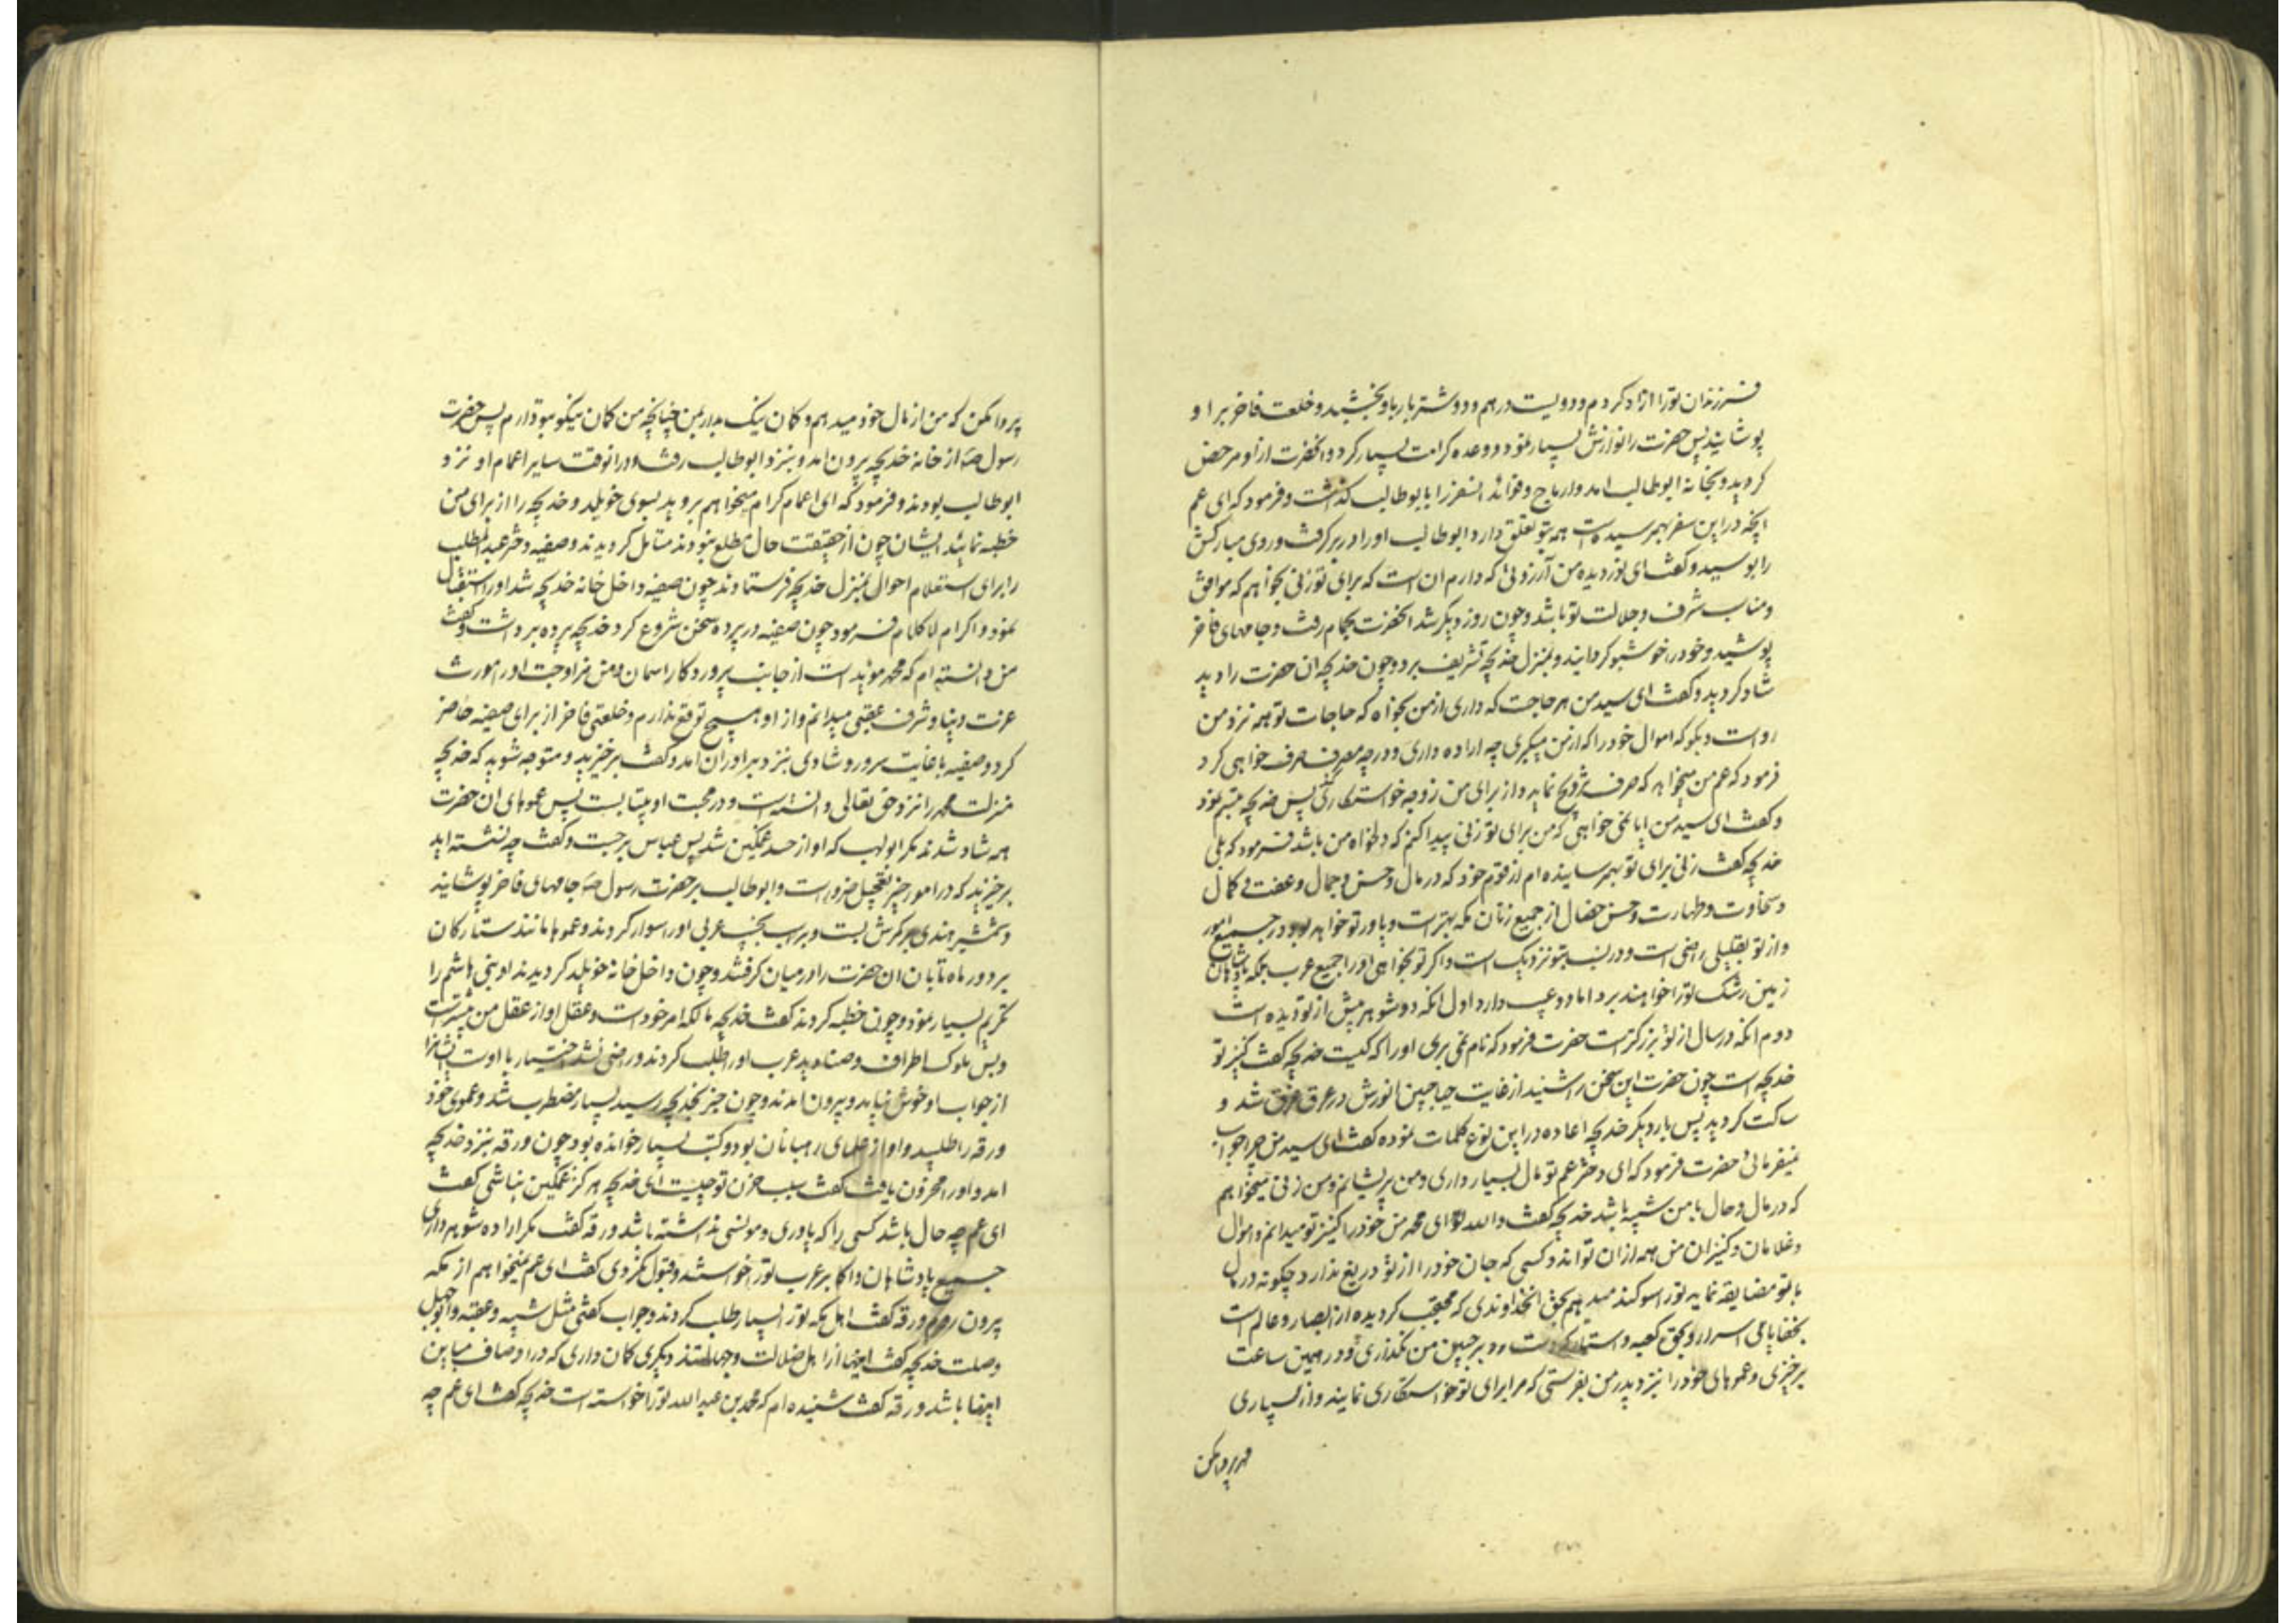 فرزندان تو را ازاد کردم و دویست درهم و دو شتر باربار باو بخشید و خلعت فاخر بر او
پوشانید پس حضرت را نوازش بسیار نمود و وعده کرامت بسیار کرد و انحضرت از او مرخص
کردید و بخانه ابوطالب امد و ارباح و فوائد انسفر را بابوطالب کذاشت و فرمود که ای عم
انچه در این سفر بهمرسیده است همه بتو تعلق دارد ابوطالب او را در بر کرفت و روی مبارکش
را بوسید و کفت ای نور دیده من آرزوئی که دارم ان است که برای تو زنی بخواهم که موافق
و مناسب شرف و جلالت تو باشد و چون روز دیکر شد انحضرت بحمام رفت و جامهای فاخر
پوشید و خود را خوشبو کردانید و بمنزل خدیجه تشریف برد و چون خدیجه ان حضرت را دید
شاد کردید و کفت ای سید من هر حاجت که داری از من بخواه که حاجات تو همه نزد من
رواست و بکو که اموال خود را که از من میکیری چه اراده داری و در چه مصرف صرف خواهی کرد
فرمود که عم من میخواهد که صرف تزویج نماید و از برای من زوجه خواستکاری کند پس خدیجه تبسم نمود
و کفت ای سید من ایا نمی خواهی که من برای تو زنی پیدا کنم که دلخواه من باشد فرمود که بلی
خدیجه کفت زنی برای تو بهمرسانیده ام از قوم خود که در مال و حسن و جمال و عفت و کمال
و سخاوت و طهارت و حسن خصال از جمیع زنان مکه بهتر است و یاور تو خواهد بود در جمیع امور
و از تو بقلیلی راضی است و در نسب بتو نزدیک است و اکر تو بخواهی او را جمیع عرب بلکه پادشاهان
زمین رشک تو را خواهند برد اما دو عیب دارد اول انکه دو شوهر پیش از تو دیده است
دوم انکه در سال از تو بزرکتر است حضرت فرمود که نام نمی بری او را که کیست خدیجه کفت کنیز تو
خدیجه است چون حضرت این سخن را شنید از غایت حیا جبین انورش در عرق غرق شد و
ساکت کردید پس بار دیکر خدیجه اعاده در این نوع کلمات نموده کفت ای سید من چرا جواب
نمیفرمائی حضرت فرمود که ای دختر عم تو مال بسیار داری و من پریشانم و من زنی میخواهم
که در مال و حال با من شبیه باشد خدیجه کفت والله ای محمد من خود را کنیز تو میدانم و اموال
و غلامان و کنیزان من همه از ان تواند و کسی که جان خود را از تو دریغ ندارد چکونه در مال
با تو مضایقه نماید تو را سوکند میدهم بحق انخداوندی که محتجب کردیده از ابصار و عالم است
بخفایای اسرار و بحق کعبه و استار که دست رد بر جبین من نکذاری و در همین ساعت
برخیزی و عموهای خود را نزد پدر من بفرستی که مرا برای تو خواستکاری نمایند و از بسیاری
مهر پروا مکن
پروا مکن که من از مال خود میدهم و کمان نیک بدار بمن چنانچه من کمان نیکو بتو دارم پس حضرت
رسول ص از خانه خدیجه بیرون امد و بنزد ابوطالب رفت و در انوقت سایر اعمام او نزد
ابوطالب بودند و فرمود که ای اعمام کرام میخواهم بروید بسوی خویلد و خدیجه را از برای من
خطبه نمائید ایشان چون از حقیقت حال مطلع نبودند متامل کردیدند و صفیه دختر عبدالمطلب
را برای استعلام احوال بمنزل خدیجه فرستادند چون صفیه داخل خانه خدیجه شد او را استقبال
نمود و اکرام لا کلام فرمود چون صفیه در پرده سخن شروع کرد خدیجه پرده برداشت و کفت
من دانسته ام که محمد مؤید است از جانب پروردکار اسمان و من مزاوجت او را مورث
عزت دنیا و شرف عقبی میدانم و از او هیچ توقع ندارم و خلعتی فاخر از برای صفیه حاضر
کرد و صفیه با غایت سرور و شادی بنزد برادران امد و کفت برخیزید و متوجه شوید که خدیجه
منزلت محمد را نزد حق تعالی دانسته است و در محبت او بیتابست پس عموهای ان حضرت
همه شاد شدند مکر ابولهب که او از حسد غمکین شد پس عباس برجست و کفت چه نشسته اید
برخیزید که در امور خیر تعجیل ضرور است و ابوطالب بر حضرت رسول ص جامهای فاخر پوشانید
و شمشیر هندی بر کمرش بست و بر اسب نجیب عربی او را سوار کردند و عموها مانند ستارکان
بر دور ماه تابان ان حضرت را در میان کرفتند و چون داخل خانه خویلد کردیدند او بنی هاشم را
تکریم بسیار نمود و چون خطبه کردند کفت خدیجه مالکه امر خود است و عقل او از عقل من بیشتر است
و بس ملوک اطراف و صنادید عرب او را طلب کردند و راضی نشد اختیار با اوست ایشانرا
از جواب او خوش نیامد و بیرون امدند و چون خبر بخدیجه رسید بسیار مضطرب شد و عموی خود
ورقه را طلبید و او از علمای رهبانان بود و کتب بسیار خوانده بود چون ورقه بنزد خدیجه
امد و او را محزون یافت کفت سبب حزن تو چیست ای خدیجه هرکز غمکین نباشی کفت
ای عم چه حال باشد کسی را که یاوری و مونسی نداشته باشد ورقه کفت مکر اراده شوهر داری
جمیع پادشاهان و اکابر عرب تو را خواستند و قبول نکردی کفت ای عم نمیخواهم از مکه
بیرون روم ورقه کفت اهل مکه تو را بسیار طلب کردند و جواب کفتی مثل شیبه و عقبه و ابوجهل
و صلت خدیجه کفت اینها از اهل ضلالت و جهالتند دیکری کمان داری که در اوصاف مباین
اینها باشد ورقه کفت شنیده ام که محمد بن عبدالله تو را خواسته است خدیجه کفت ای عم چه